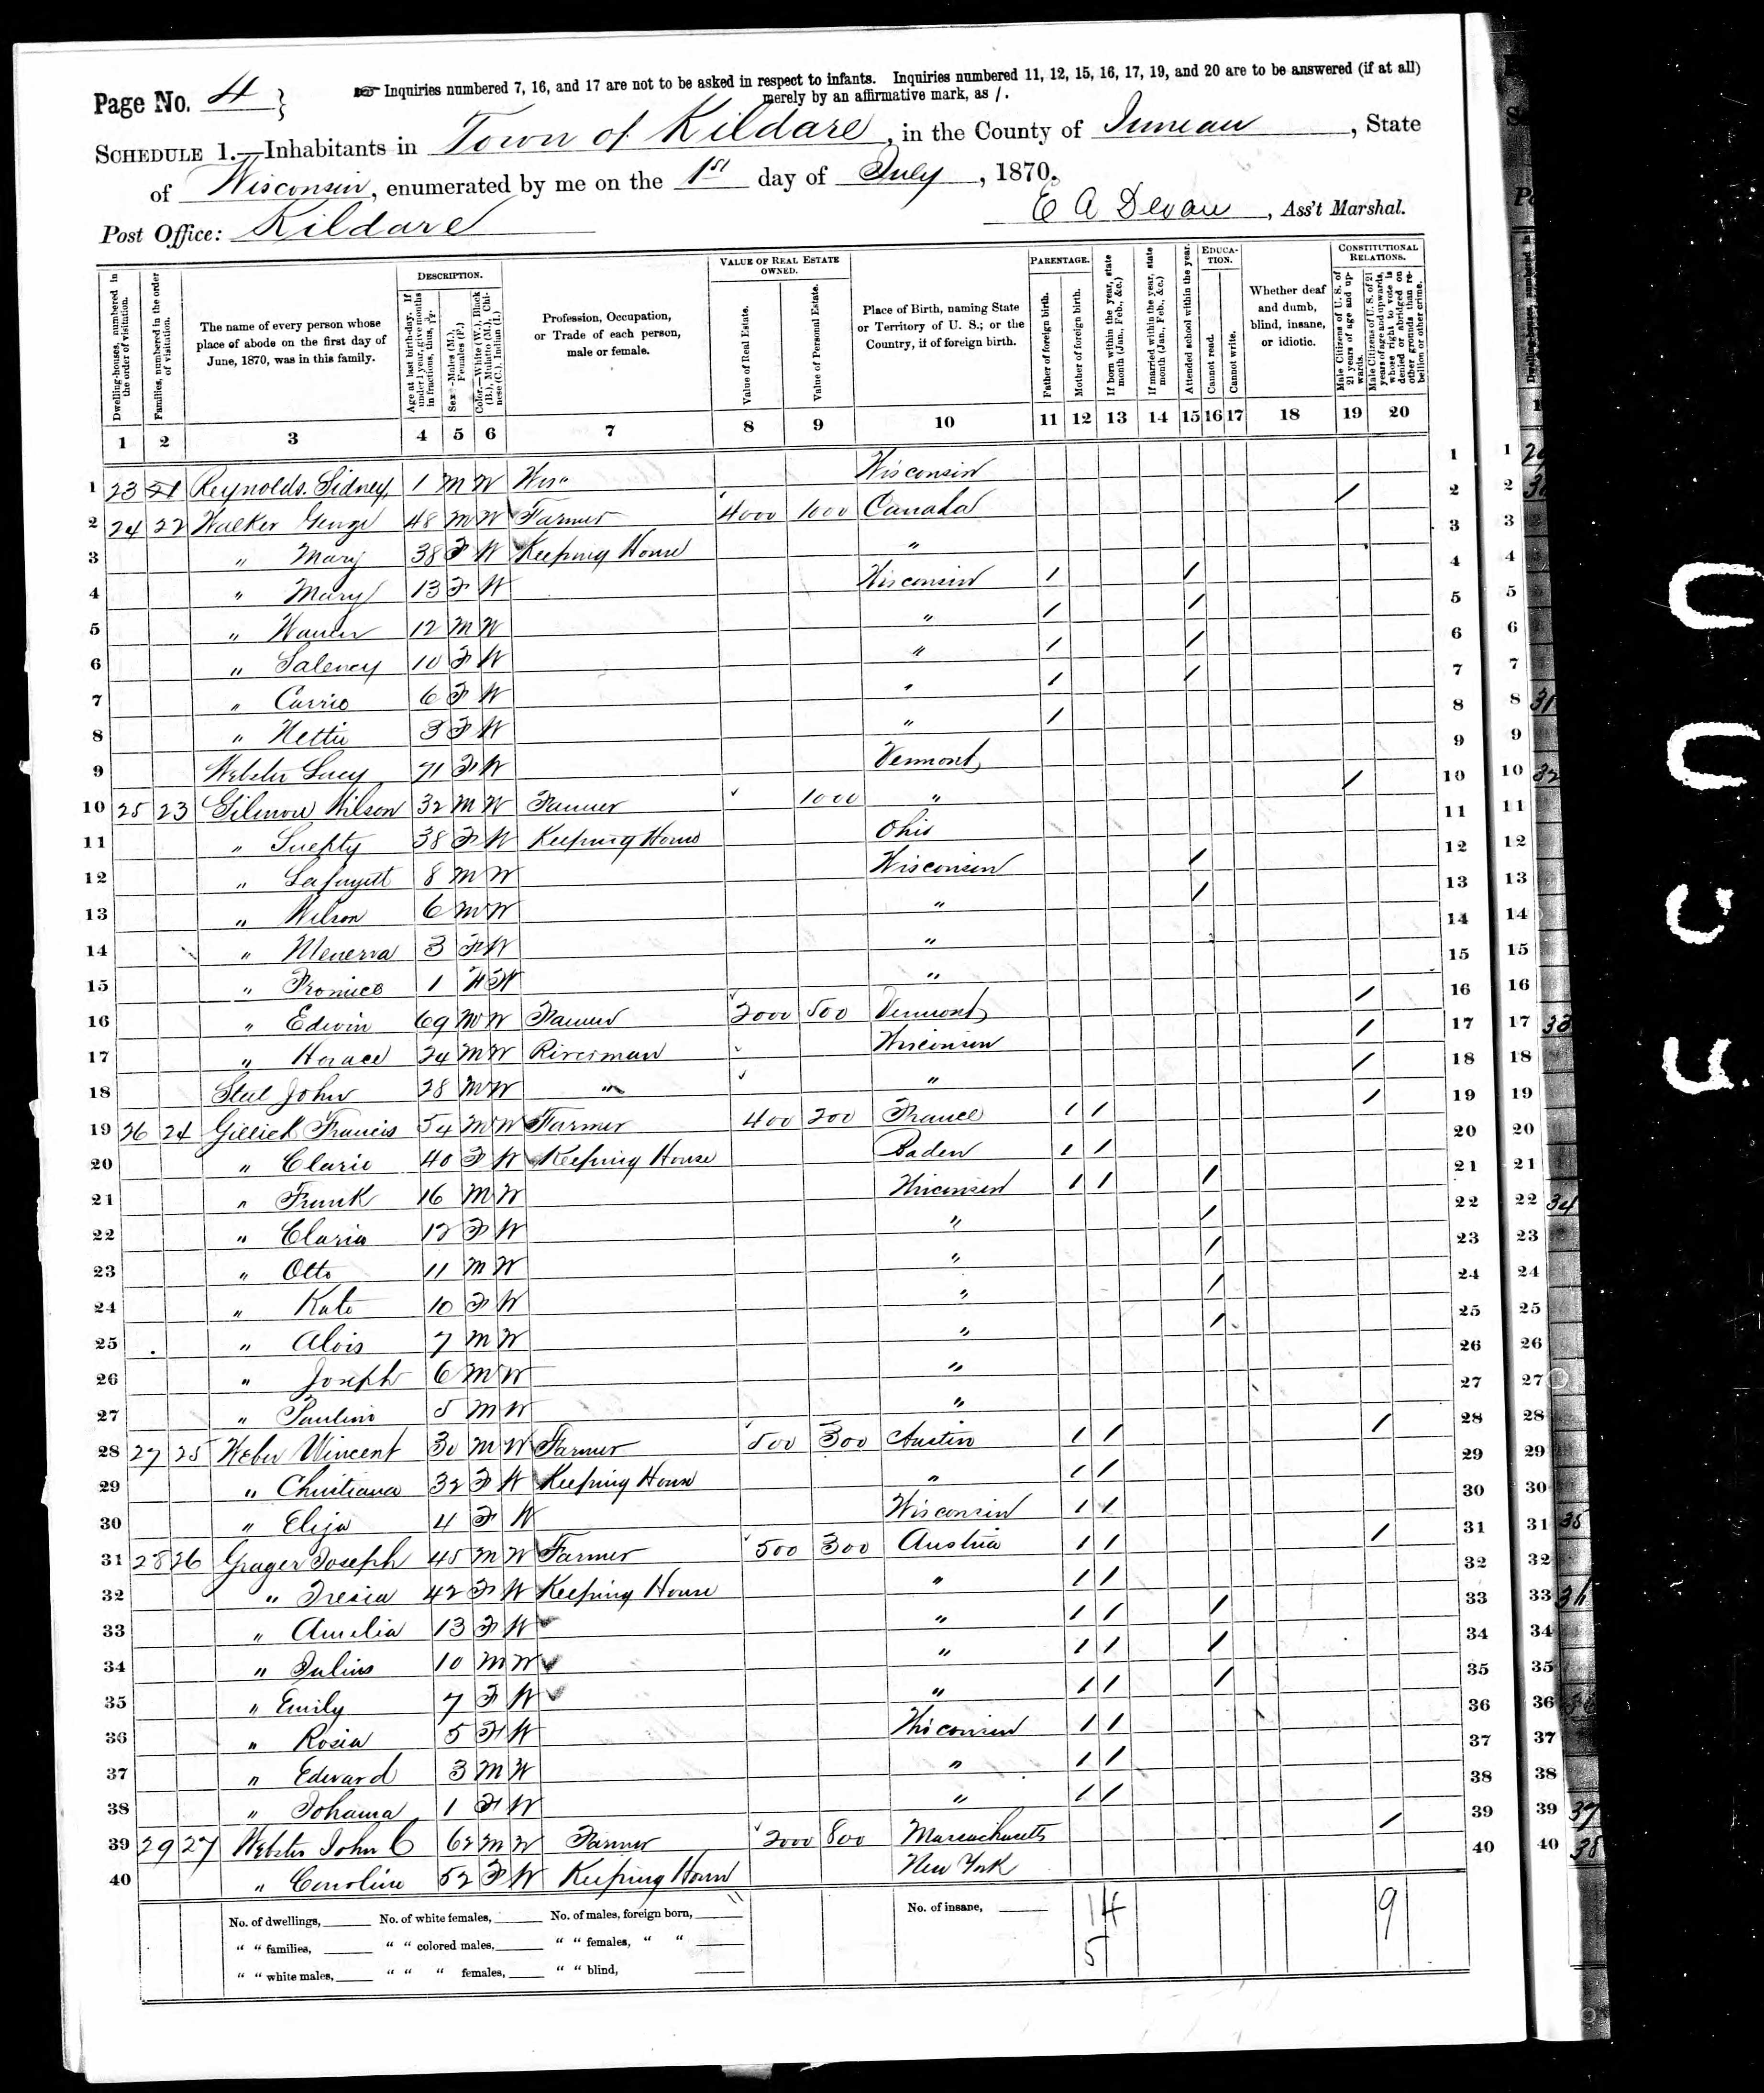 Page No. 4 } Inquiries numbered 7, 16, and 17 are not to be asked in respect to infants. Inquiries numbered 11, 12, 15, 16, 17, 19, and 20 are to be answered (if at all)
merely by an affirmative mark, as /.
SCHEDULE 1.—Inhabitants in Town of Kildare, in the County of Juneau, State
of Wisconsin, enumerated by me on the 1st day of July, 1870.
Post Office: Kildare
E A Devau, Ass't Marshal.
Dwelling-houses, numbered in the order of visitation.
Families, numbered in the order of visitation.
The name of every person whose place of abode on the first day of June, 1870, was in this family.
DESCRIPTION.
Age at last birth-day. If under 1 year, give months in fractions, thus,
Sex.—Males (M.), Females (F.)
Color.—White (W.), Black (B.), Mulatto (M.), Chinese (C.), Indian (I.)
Profession, Occupation, or Trade of each person, male or female.
VALUE OF REAL ESTATE OWNED.
Value of Real Estate.
Value of Personal Estate.
Place of Birth, naming State or Territory of U. S.; or the Country, if of foreign birth.
PARENTAGE.
Father of foreign birth.
Mother of foreign birth.
If born within the year, state month (Jan., Feb., &c.)
If married within the year, state month (Jan., Feb., &c.)
EDUCATION.
Attended school within the year.
Cannot read.
Cannot write.
Whether deaf and dumb, blind, insane, or idiotic.
CONSTITUTIONAL RELATIONS.
Male Citizens of U. S. of 21 years of age and upwards.
Male Citizens of U. S. of 21 years of age and upwards, whose right to vote is denied or abridged on other grounds than rebellion or other crime.
1 2 3 4 5 6 7 8 9 10 11 12 13 14 15 16 17 18 19 20
1 23 21 Reynolds Sidney 1 M W Wis" Wisconsin 1
2 24 22 Walker George 48 M W Farmer 4000 1000 Canada / 2
3 " Mary 38 F W Keeping House " 3
4 " Mary 13 F W Wisconsin / / 4
5 " Warren 12 M W " / / 5
6 " Saleney 10 F W " / / 6
7 " Carrie 6 F W " / / 7
8 " Nettie 3 F W " / 8
9 Webster Lucy 71 F W Vermont 9
10 25 23 Gilmore Wilson 32 M W Farmer 1000 " / 10
11 " 38 F W Keeping House Ohio 11
12 " Lafayett 8 M W Wisconsin / 12
13 " Wilson 6 M W " / 13
14 " Menerva 3 F W " 14
15 " 1 F W " 15
16 " Edwin 69 M W Farmer 2000 500 Vermont / 16
17 " Horace 24 M W Riverman Wisconsin / 17
18 Steel John 28 M W " " / 18
19 26 24 Gillich Francis 54 M W Farmer 400 200 France / / / 19
20 " Clarie 40 F W Keeping House Baden / / 20
21 " Frank 16 M W Wisconsin / / / 21
22 " Claria 12 F W " / 22
23 " Otto 11 M W " / 23
24 " Kate 10 F W " / 24
25 " Alois 7 M W " / 25
26 " Joseph 6 M W " 26
27 " Paulino 5 M W " 27
28 27 25 Weber Wincent 30 M W Farmer 500 300 Austin / / / 28
29 " Christiana 32 F W Keeping House " / / 29
30 " Eliza 4 F W Wisconsin / / 30
31 28 26 Grager Joseph 45 M W Farmer 500 300 Austria / / / 31
32 " Tresia 42 F W Keeping House " / / 32
33 " Amelia 13 F W " / / / 33
34 " Julius 10 M W " / / / 34
35 " Emily 7 F W " / / / 35
36 " Rosia 5 F W Wisconsin / / 36
37 " Edward 3 M W " / / 37
38 " Johanna 1 F W " / / 38
39 29 27 Webster John C 62 M W Farmer 2000 800 Massachusetts / 39
40 " Caroline 52 F W Keeping House New York 40
No. of dwellings, No. of white females, No. of males, foreign born, No. of insane, 14 9
" " families, " " colored males, " " females, " " 5
" " white males, " " " females, " " blind,